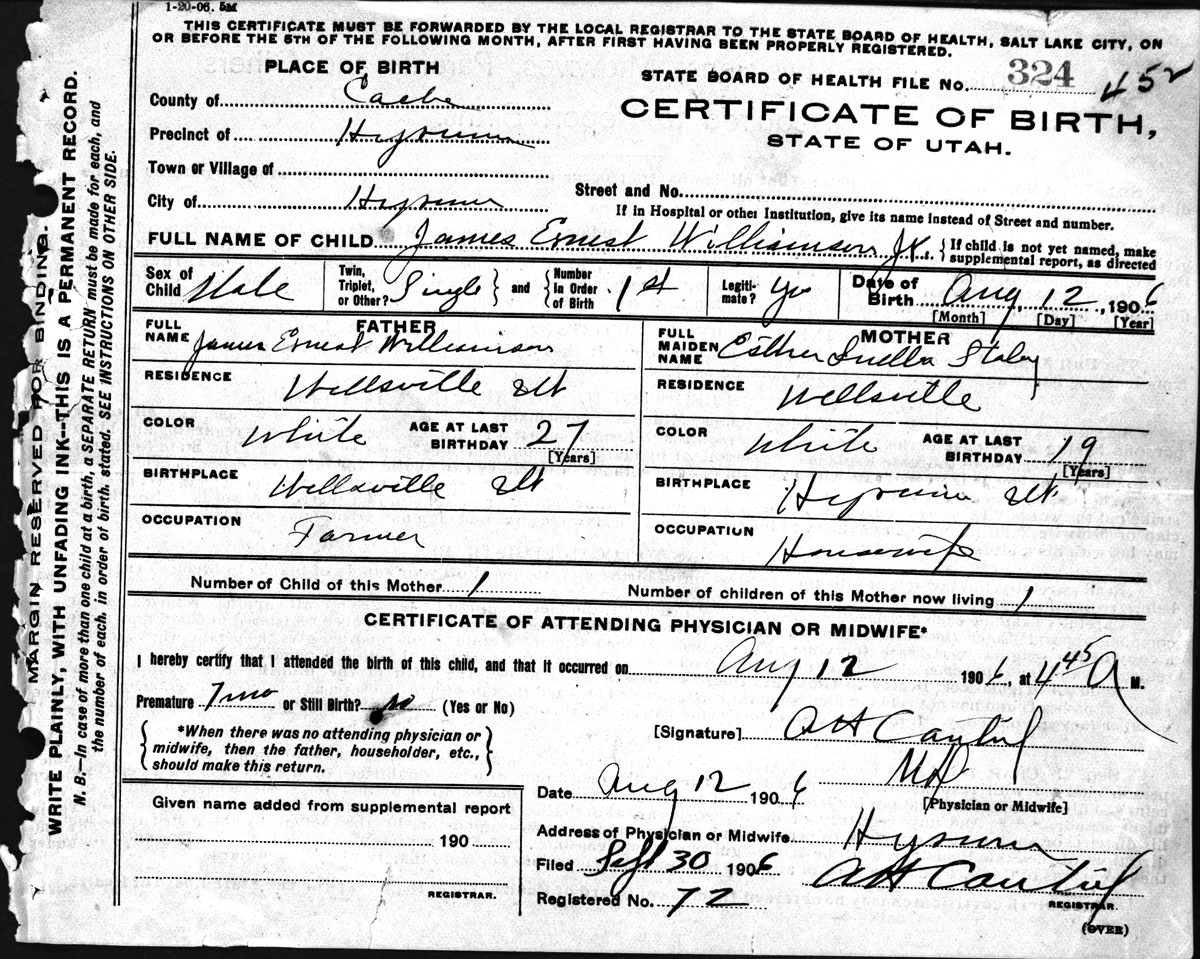 1-20-06. 5M
THIS CERTIFICATE MUST BE FORWARDED BY THE LOCAL REGISTRAR TO THE STATE BOARD OF HEALTH, SALT LAKE CITY, ON
OR BEFORE THE 5TH OF THE FOLLOWING MONTH, AFTER FIRST HAVING BEEN PROPERLY REGISTERED.
PLACE OF BIRTH
STATE BOARD OF HEALTH FILE No. 324 452
CERTIFICATE OF BIRTH,
STATE OF UTAH.
County of Cache
Precinct of Hyrum
Town or Village of
City of Hyrum
Street and No.
If in Hospital or other Institution, give its name instead of Street and number.
FULL NAME OF CHILD James Ernest Williamson Jr. { If child is not yet named, make
supplemental report, as directed
Sex of Child Male
Twin, Triplet, or Other? Single } and { Number in Order of Birth 1st
Legitimate? Yes
Date of Birth Aug 12, 1906
[Month] [Day] [Year]
FATHER
FULL NAME James Ernest Williamson
RESIDENCE Wellsville Ut
COLOR White AGE AT LAST BIRTHDAY 27
[Years]
BIRTHPLACE Wellsville Ut
OCCUPATION Farmer
MOTHER
FULL MAIDEN NAME Esther Luella
RESIDENCE Wellsville
COLOR White AGE AT LAST BIRTHDAY 19
[Years]
BIRTHPLACE Hyrum Ut
OCCUPATION Housewife
Number of Child of this Mother 1
Number of children of this Mother now living 1
CERTIFICATE OF ATTENDING PHYSICIAN OR MIDWIFE*
I hereby certify that I attended the birth of this child, and that it occurred on Aug 12 1906, at 4 45 A M.
Premature 7mo or Still Birth? no (Yes or No)
{ *When there was no attending physician or
midwife, then the father, householder, etc.,
should make this return. }
[Signature] A H
MD
[Physician or Midwife]
Date Aug 12 1906
Address of Physician or Midwife Hyrum
Filed Sept 30 1906
A H
REGISTRAR.
Registered No. 72
(OVER)
Given name added from supplemental report
190
REGISTRAR.
MARGIN RESERVED FOR BINDING.
WRITE PLAINLY, WITH UNFADING INK--THIS IS A PERMANENT RECORD.
N. B.—In case of more than one child at a birth, a SEPARATE RETURN must be made for each, and
the number of each, in order of birth, stated. SEE INSTRUCTIONS ON OTHER SIDE.